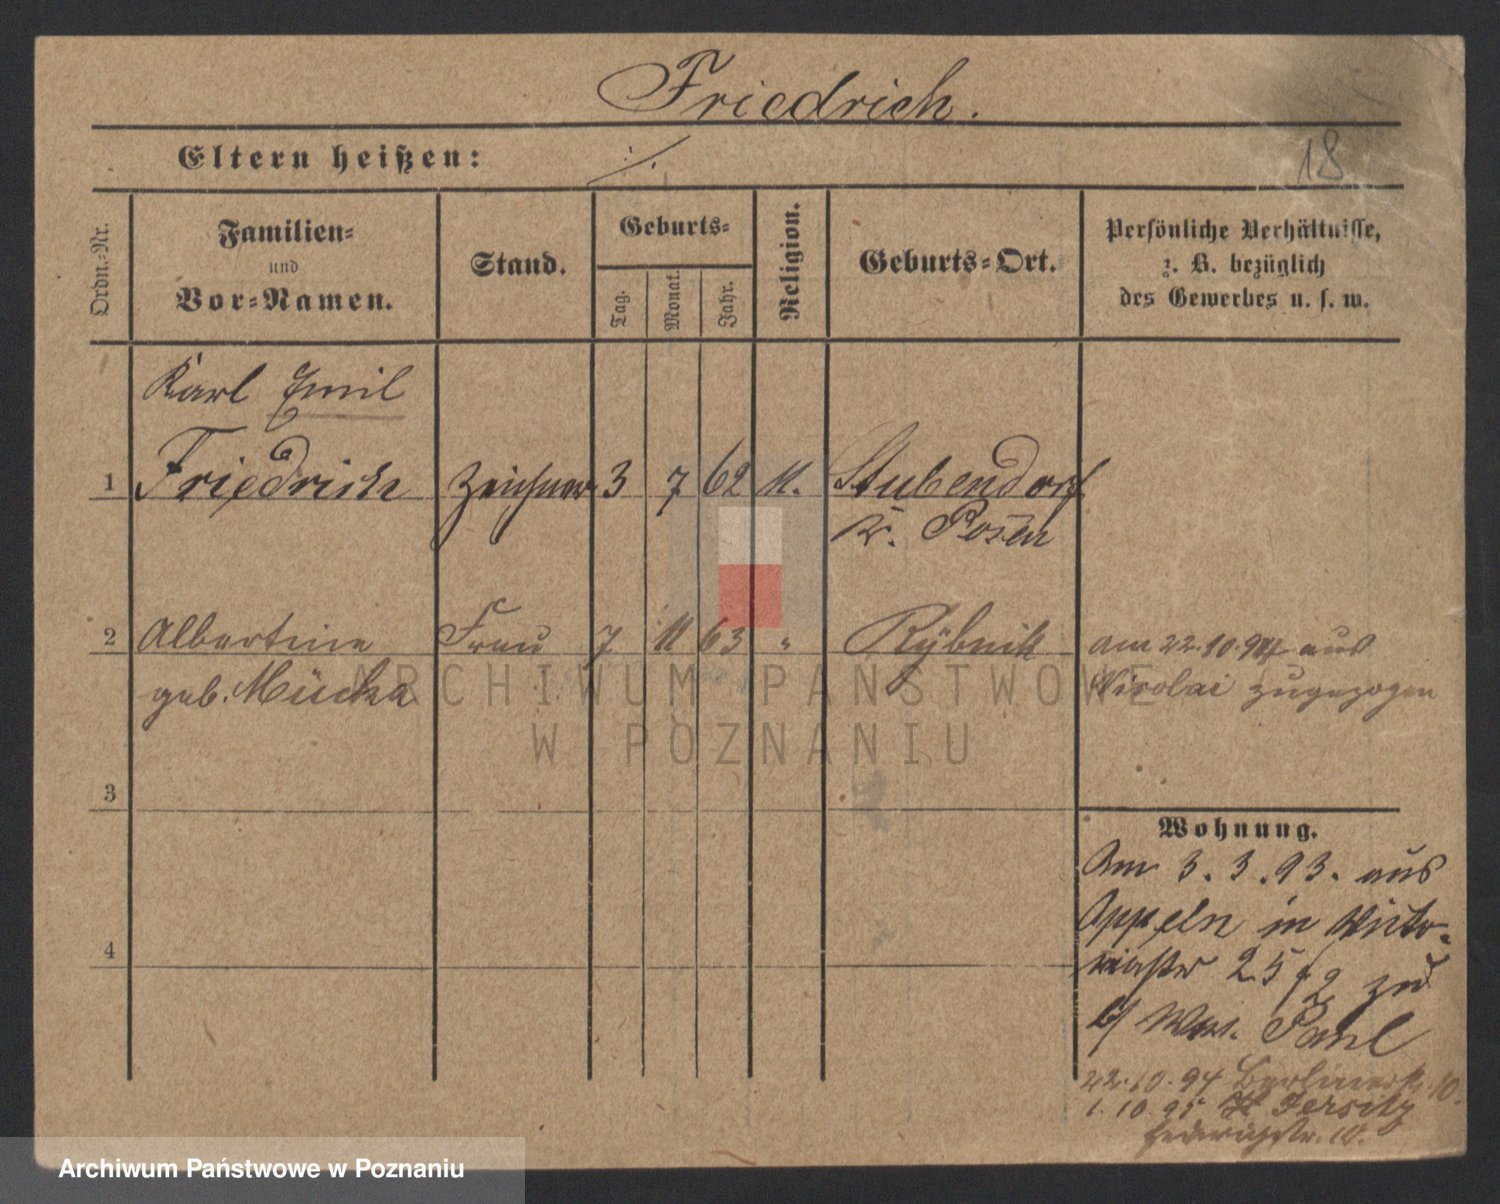 Friedrich.
18
Eltern heißen: ./.
Ordn.-Nr.
Familien-
und
Vor-Namen.
Stand.
Geburts-
Tag.
Monat.
Jahr.
Religion.
Geburts-Ort.
Persönliche Verhältnisse,
z. B. bezüglich
des Gewerbes u. s. w.
Karl Emil
1 Friedrich Zeichner 3 7 62 k. Stubendorf
Kr. Posen
2 Albertine Frau 7 11 63 " Rybnik am 22.10.94 aus
geb. Mücka Nicolai zugezogen
ARCHIWUM PAŃSTWOWE
W POZNANIU
3
Wohnung.
Am 3.3.93. aus
Oppeln in Victo-
riastr 25 zu
b/ Paul
4
22.10.94 Berlinerstr. 10.
1.10.95 Jersitz
str. 10.
Archiwum Państwowe w Poznaniu